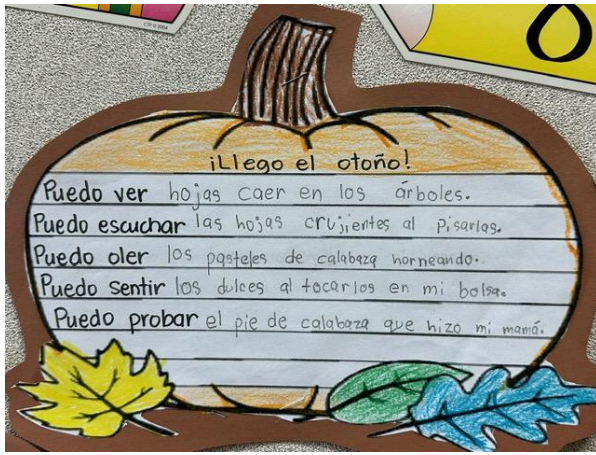 ¡Llego el otoño!
Puedo ver hojas caer en los árboles.
Puedo escuchar las hojas crujientes al pisarlas.
Puedo oler los pasteles de calabaza horneando.
Puedo sentir los dulces al tocarlos en mi bolsa.
Puedo probar el pie de calabaza que hizo mi mamá.